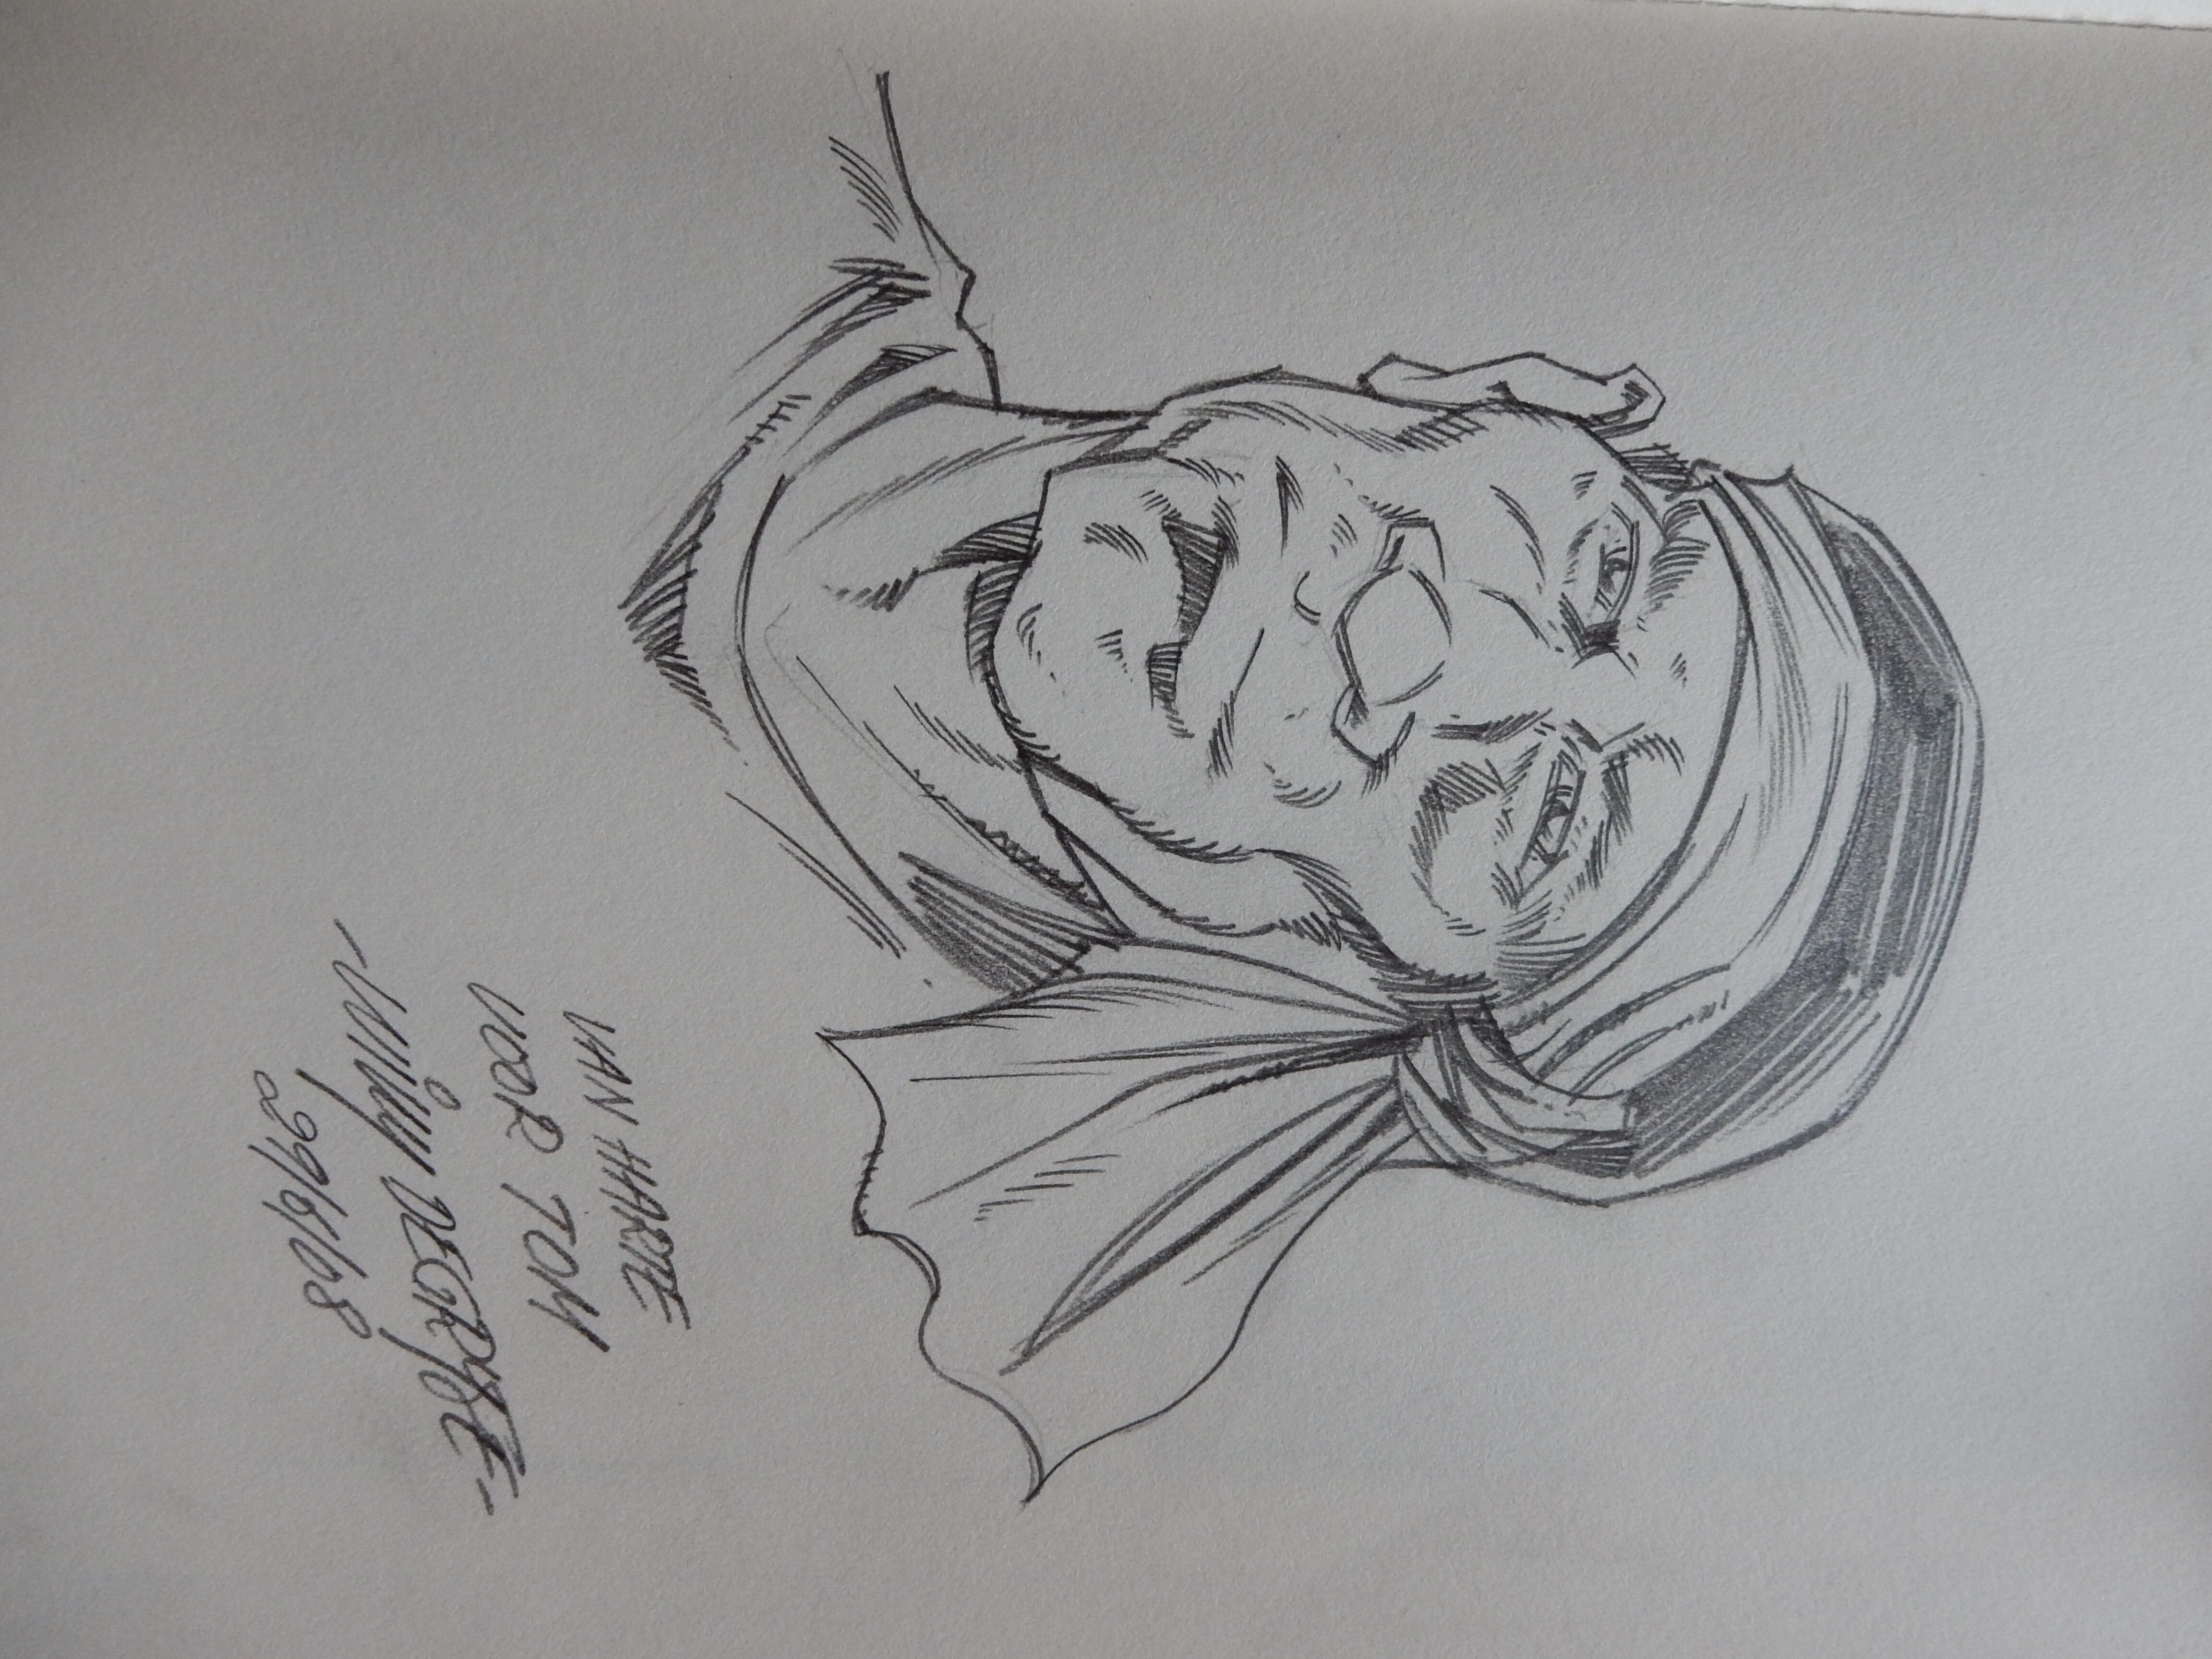 VAN HARTE
VOOR TOM
-WILLY DEGRYSE-
29/6/08